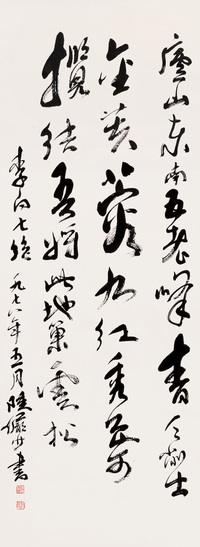 廬山東南五老峰青天削出
金芙蓉九江秀色可
攬結吾將此地巢雲松
李白七絕 一九七八年五月 陸儼少書